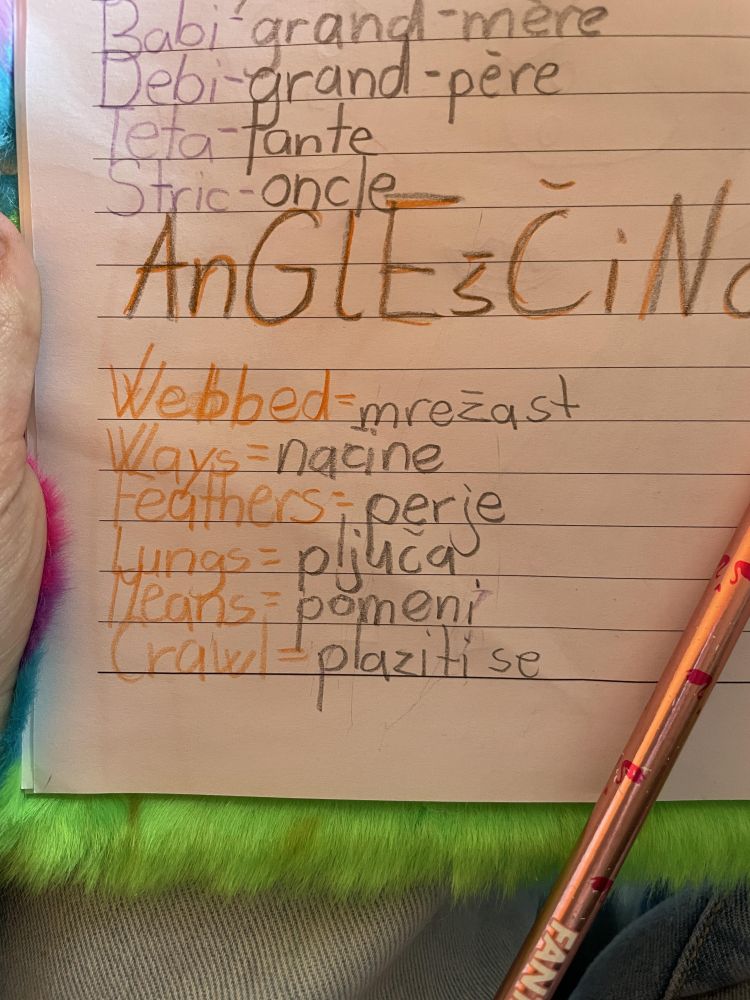 Babi-grand-mère
Debi-grand-père
Teta-tante
Stric-oncle
AnGlEšČiN
Webbed=mrežast
Ways=načine
Feathers=perje
Lungs=pljuča
Means=pomeni
Crawl=plaziti se
FAN